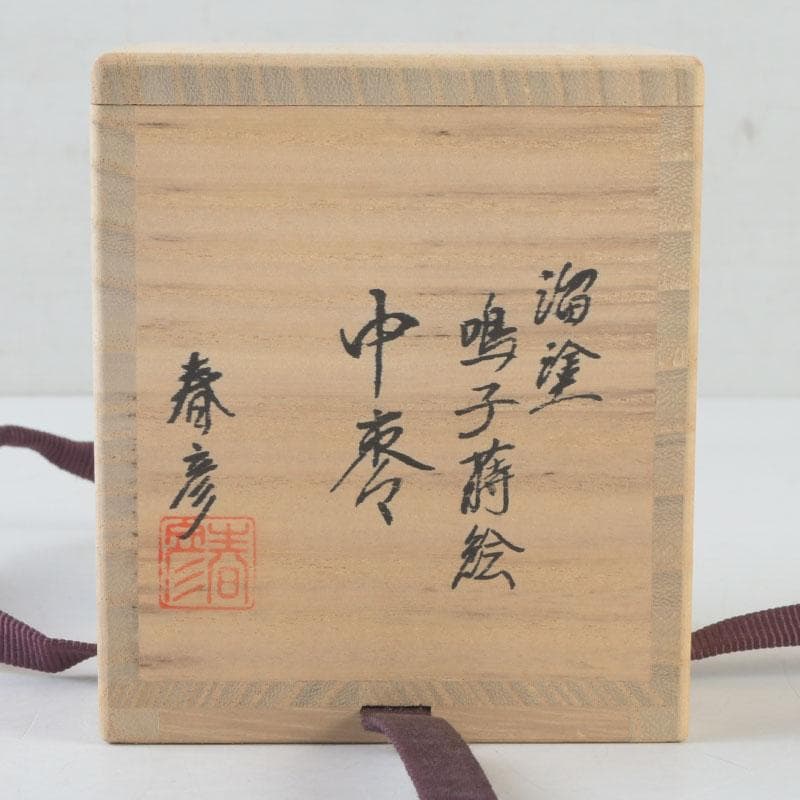 溜塗
鳴子蒔絵
中棗
春彦
春彦